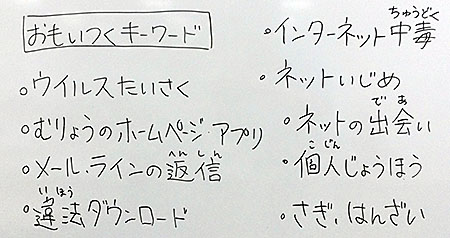 おもいつくキーワード
。ウイルスたいさく
。むりょうのホームページ・アプリ
へんしん
。メール・ラインの返信
いほう
。違法ダウンロード
ちゅうどく
。インターネット中毒
。ネットいじめ
であ
。ネットの出会い
こじん
。個人じょうほう
。さぎ、はんざい